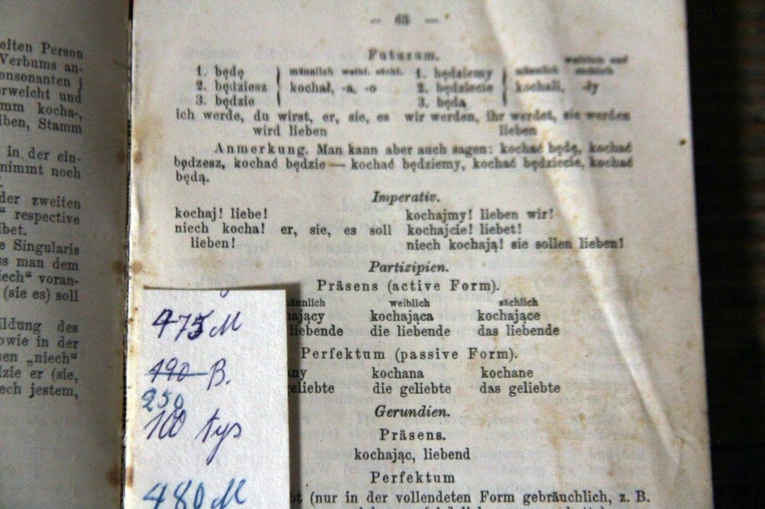 eiten Person
Verbums an-
onsonanten j
erweicht und
mm kocha-,
iben, Stamm
in der ein-
nimmt noch
der zweiten
“ respective
ibet.
e Singularis
s man dem
iech“ voran-
(sie es) soll
ldung des
owie in der
en „niech“
dzie er (sie,
ech jestem,
— 63 —
Futurum.
weiblich und
männlich weibl. sächl. männlich sachlich
1. będę 1. będziemy
2. będziesz kochał, -a, -o 2. będziecie kochali, -ły
3. będzie 3. będą
ich werde, du wirst, er, sie, es wir werden, ihr werdet, sie werden
wird lieben lieben
Anmerkung. Man kann aber auch sagen: kochać będę, kochać
będzesz, kochać będzie — kochać będziemy, kochać będziecie, kochać
będą.
Imperativ.
kochaj! liebe! kochajmy! lieben wir!
niech kocha! er, sie, es soll kochajcie! liebet!
lieben! niech kochają! sie sollen lieben!
Partizipien.
Präsens (active Form).
männlich weiblich sächlich
ający kochająca kochające
liebende die liebende das liebende
Perfektum (passive Form).
any kochana kochane
geliebte die geliebte das geliebte
Gerundien.
Präsens.
kochając, liebend
Perfektum
bt (nur in der vollendeten Form gebräuchlich, z. B.
475 M
490 B.
250
100 tys
480 M